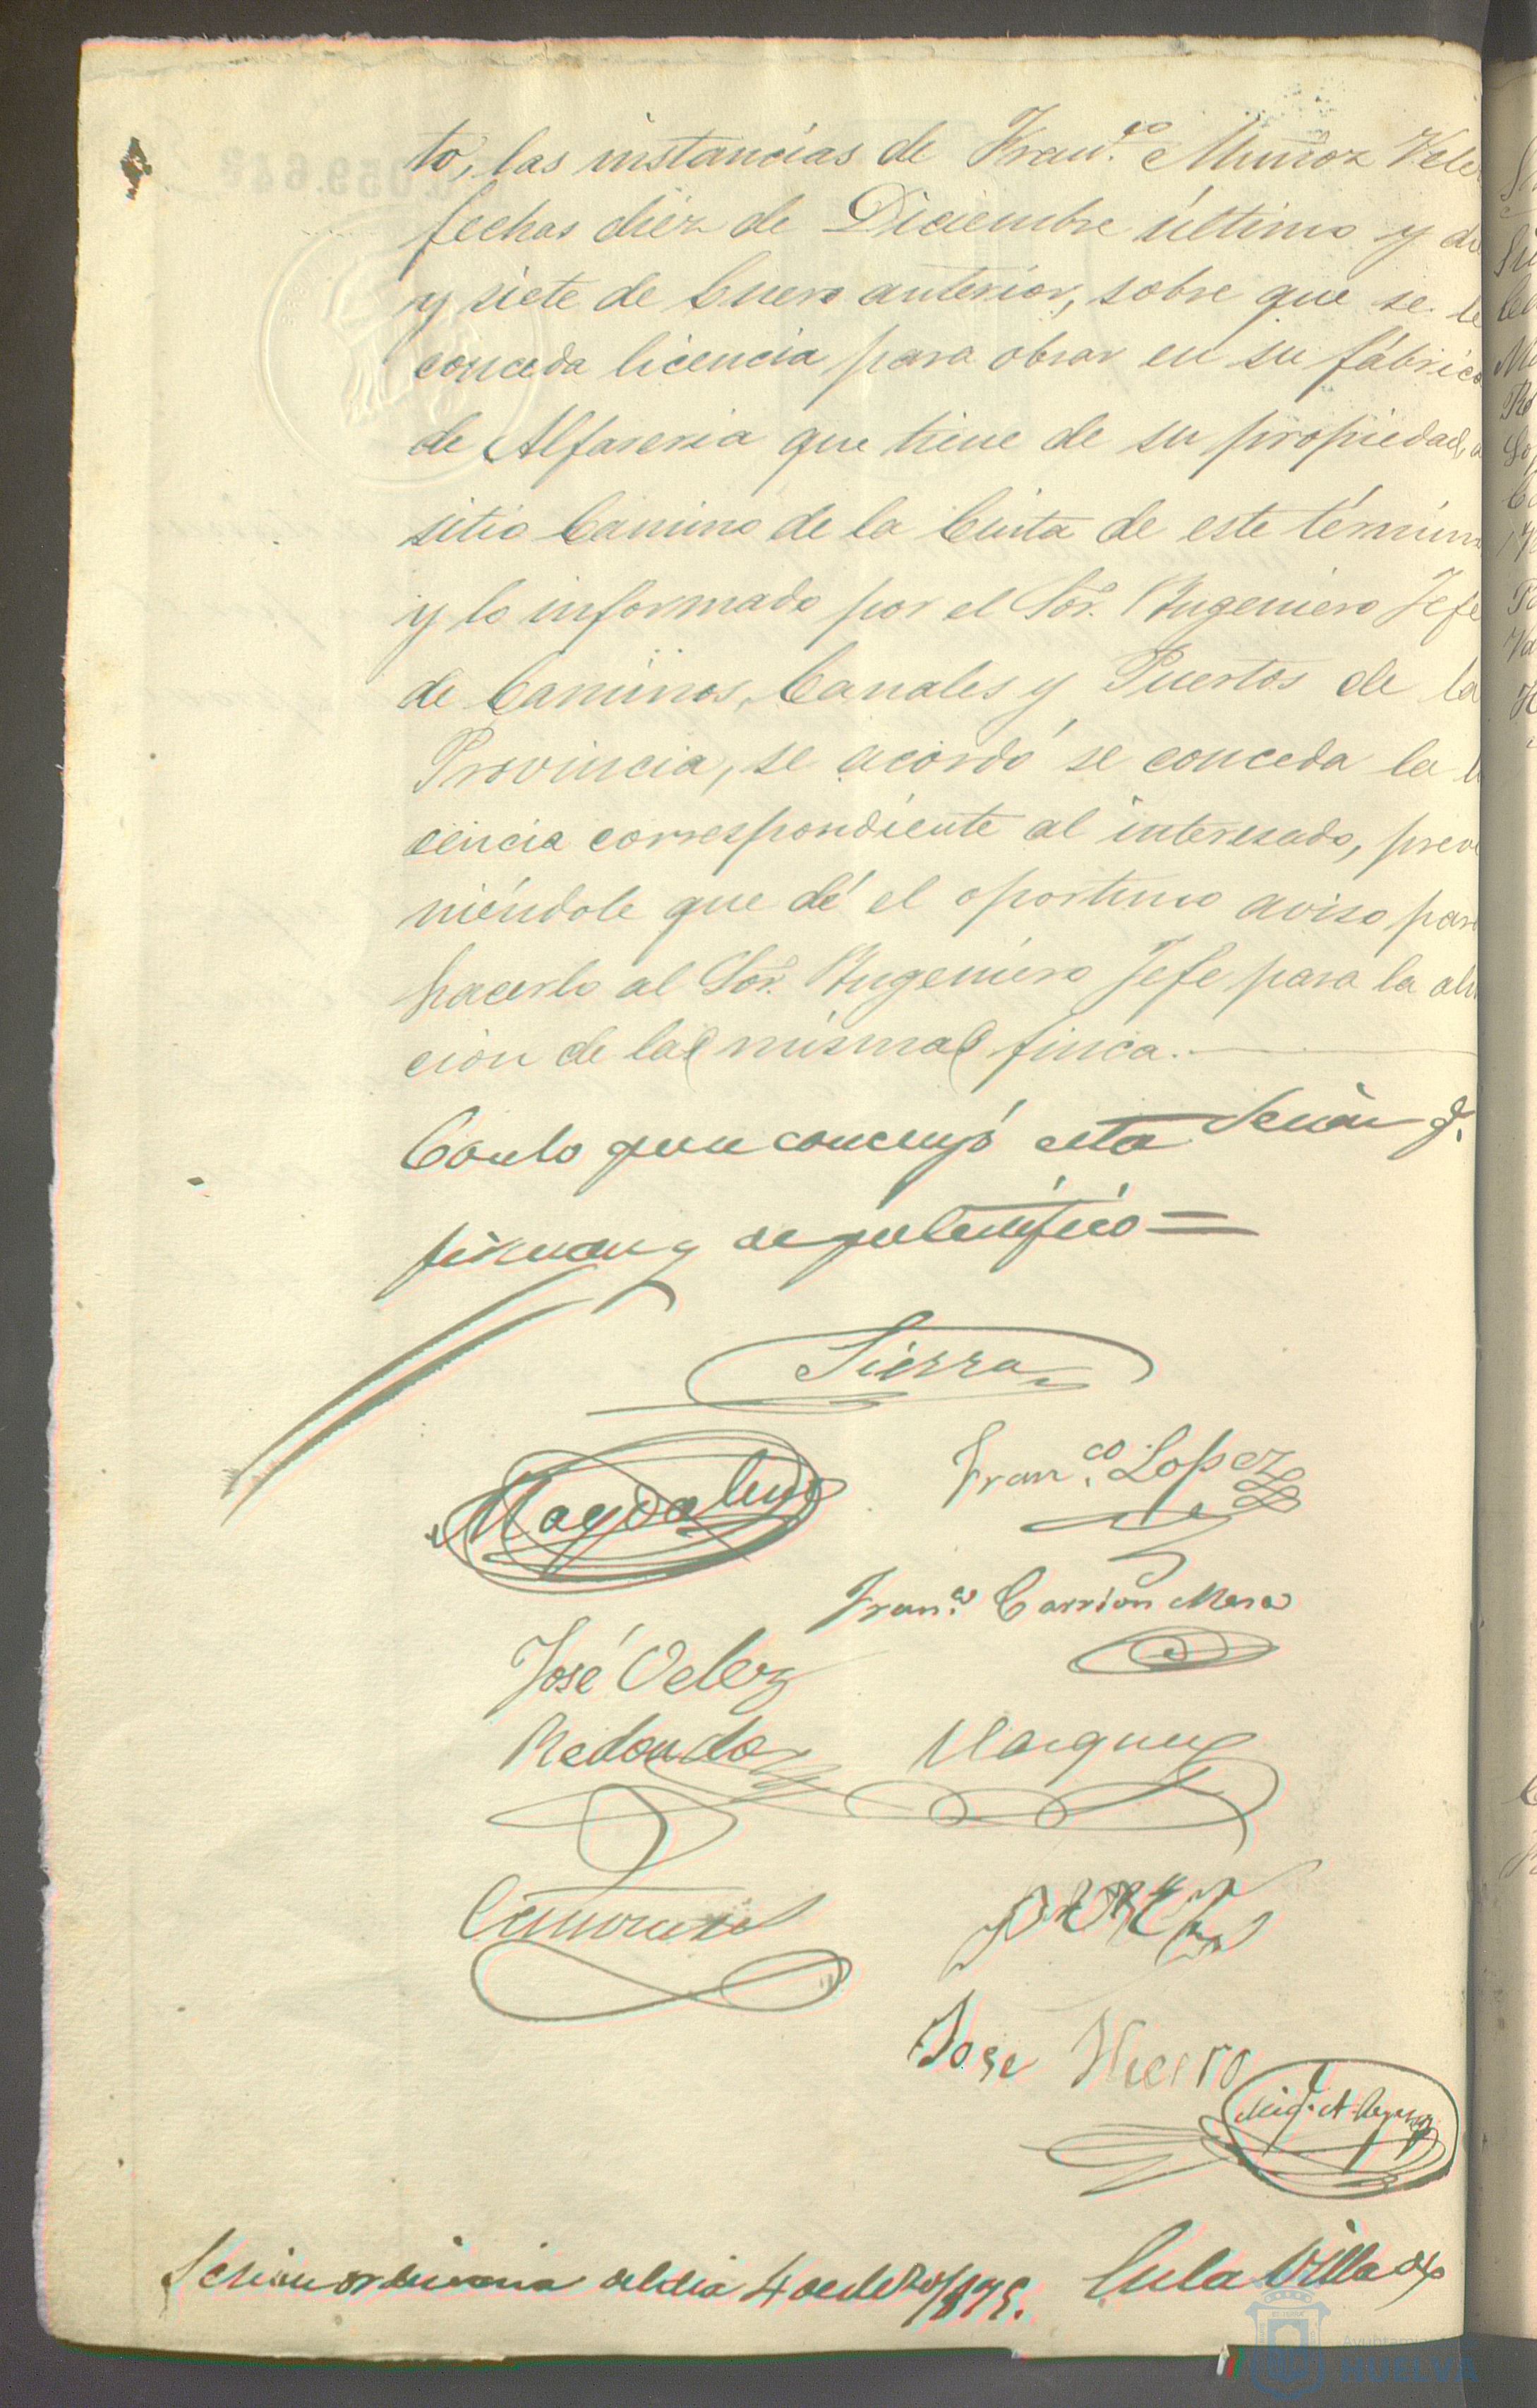 to, las instancias de Fran.co Muñoz Vele
fechas diez de Diciembre último y di
y siete de Enero anterior, sobre que se le
conceda licencia para obrar en su fábrica
de Alfareria que tiene de su propiedad, a
sitio Camino de la Cinta de este término
y lo informado por el Sor. Yngeniero Jefe
de Caminos, Canales y Puertos de la
Provincia, se acordó se conceda la li
cencia correspondiente al interesado, preve
niéndole que dé el oportuno aviso para
hacerlo al Sor. Yngeniero Jefe para la ali
cion de la misma finca.
Con lo que se concluyó esta Sesión q.
firman y de que certifico=
Sierra
Magdaleno Fran.co Lopez
Fran.co Carrion Mora
José Velez
Redondo Vazquez
José Hierro
Sesion ordinaria del dia 4 de de En la Villa de
HUELVA